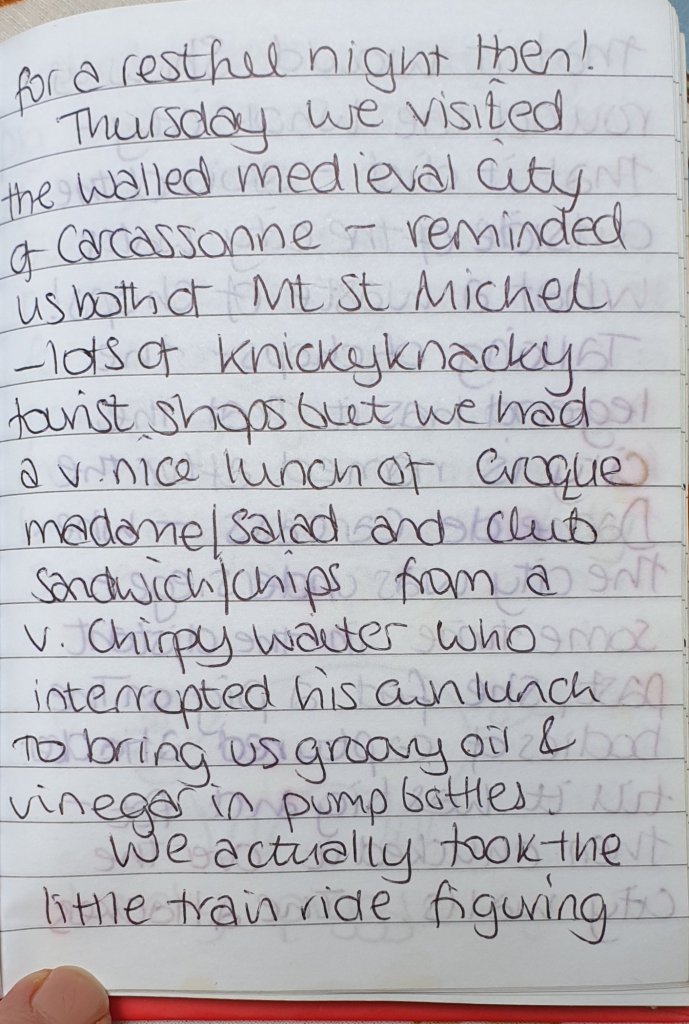 for a restful night then!
Thursday we visited
the walled medieval city
of Carcassonne - reminded
us both of Mt St Michel
- lots of knickyknacky
tourist shops but we had
a v. nice lunch of Croque
madame/salad and club
sandwich/chips from a
v. chirpy waiter who
interrupted his own lunch
to bring us groovy oil &
vinegar in pump bottles.
We actually took the
little train ride figuring